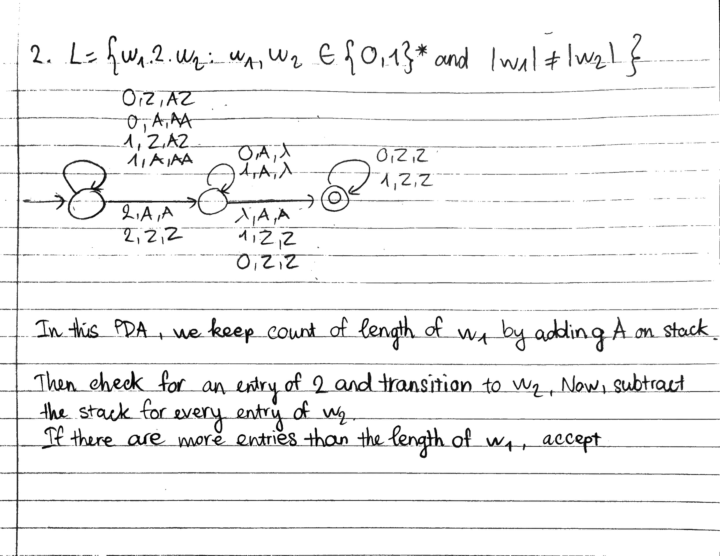 2. L= {w1.2.w2: w1, w2 ∈ {0,1}* and |w1| ≠ |w2|}
0,Z,AZ
0,A,AA
1,Z,AZ
1,A,AA
0,A,λ
1,A,λ
0,Z,Z
1,Z,Z
2,A,A
2,Z,Z
λ,A,A
1,Z,Z
0,Z,Z
In this PDA, we keep count of length of w1 by adding A on stack.
Then check for an entry of 2 and transition to w2, Now, subtract
the stack for every entry of w2.
If there are more entries than the length of w1, accept